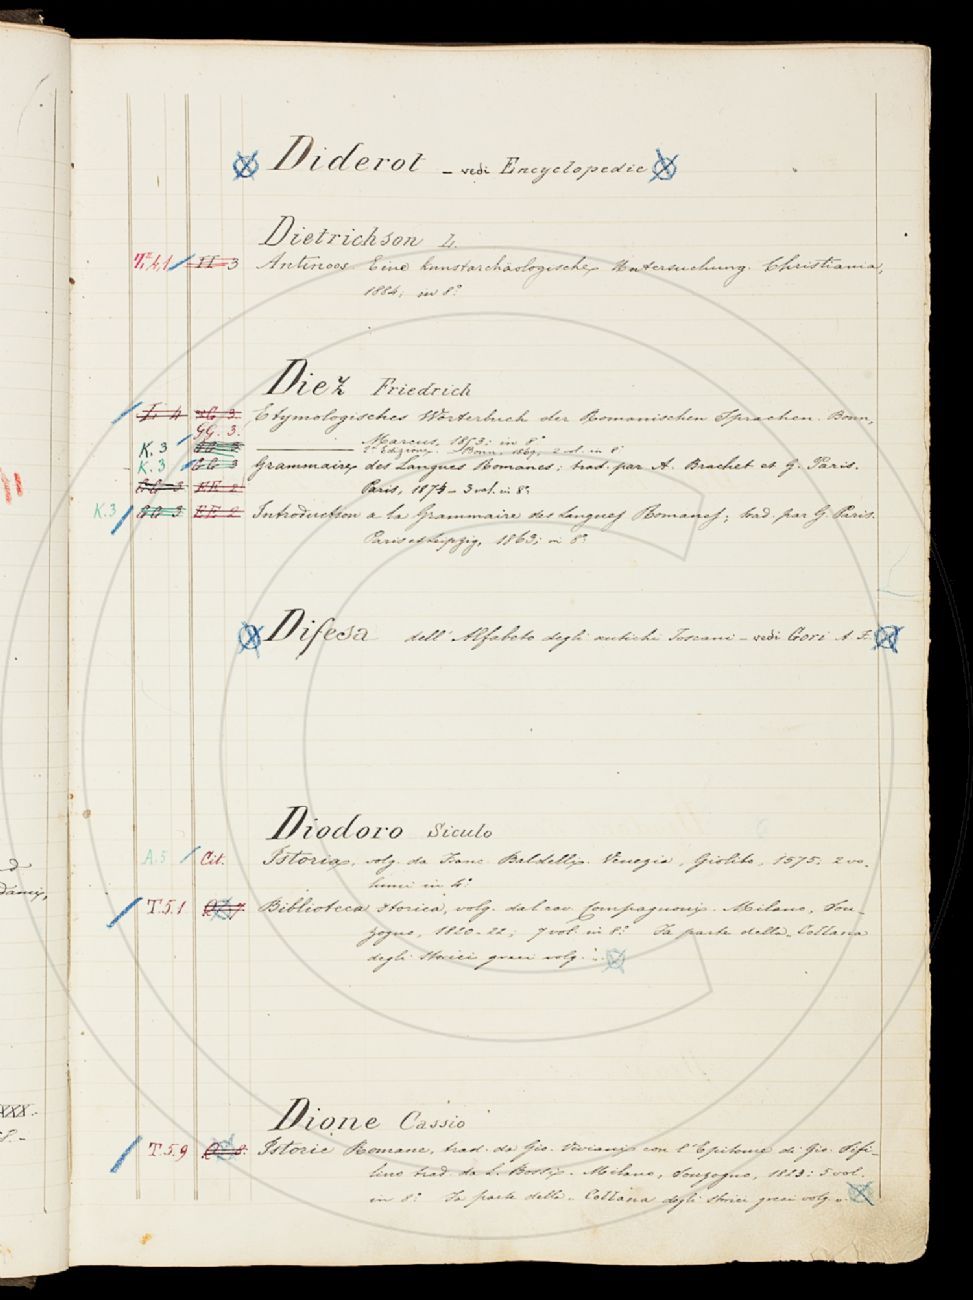 Diderot – vedi Encyclopedie
Dietrichson L.
Z.4.1 II 3 Antinoos. Eine kunstarchäologische Untersuchung. Christiania,
1884; in 8°
Diez Friedrich
Etymologisches Wörterbuch der Romanischen Sprachen. Bonn,
GG. 3.
Marcus, 1853; in 8°
K. 3 2ª Edizione. Bonn, 2 vol. in 8°
K. 3 Grammaire des Langues Romanes; trad. par A. Brachet et G. Paris.
EE 2 Paris, 1874 – 3 vol. in 8°
K.3 EE 2 Introduction a la Grammaire des Langues Romanes; trad. par G. Paris.
Paris et Leipzig, 1863; in 8°
Difesa dell' Alfabeto degli antichi Toscani – vedi Gori A. F.
Diodoro Siculo
A.5 Cit. Istoria, volg. da Franc. Baldelli. Venezia, Giolito, 1575. 2 vo-
lumi in 4°
T.5.1 Biblioteca storica, volg. dal cav. Compagnoni. Milano, Son-
zogno, 1820-22; 7 vol. in 8° Fa parte della Collana
degli storici greci volg.
Dione Cassio
T.5.9 Istorie Romane, trad. da Gio. Viviani con l'Epitome di Gio. Sifi-
lino trad. da L. Bossi. Milano, Sonzogno, 1823: 5 vol.
in 8° Fa parte della Collana degli storici greci volg.